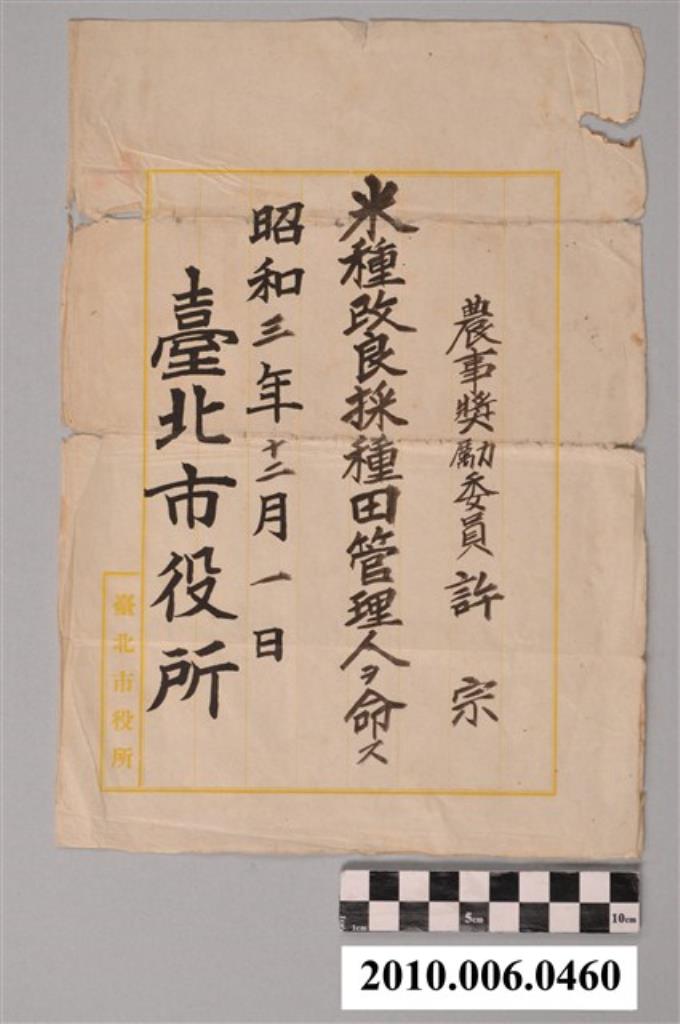 農事獎勵委員 許宗
米種改良採種田管理人ヲ命ス
昭和三年十二月一日
臺北市役所
臺北市役所
1cm 5cm 10cm
2010.006.0460